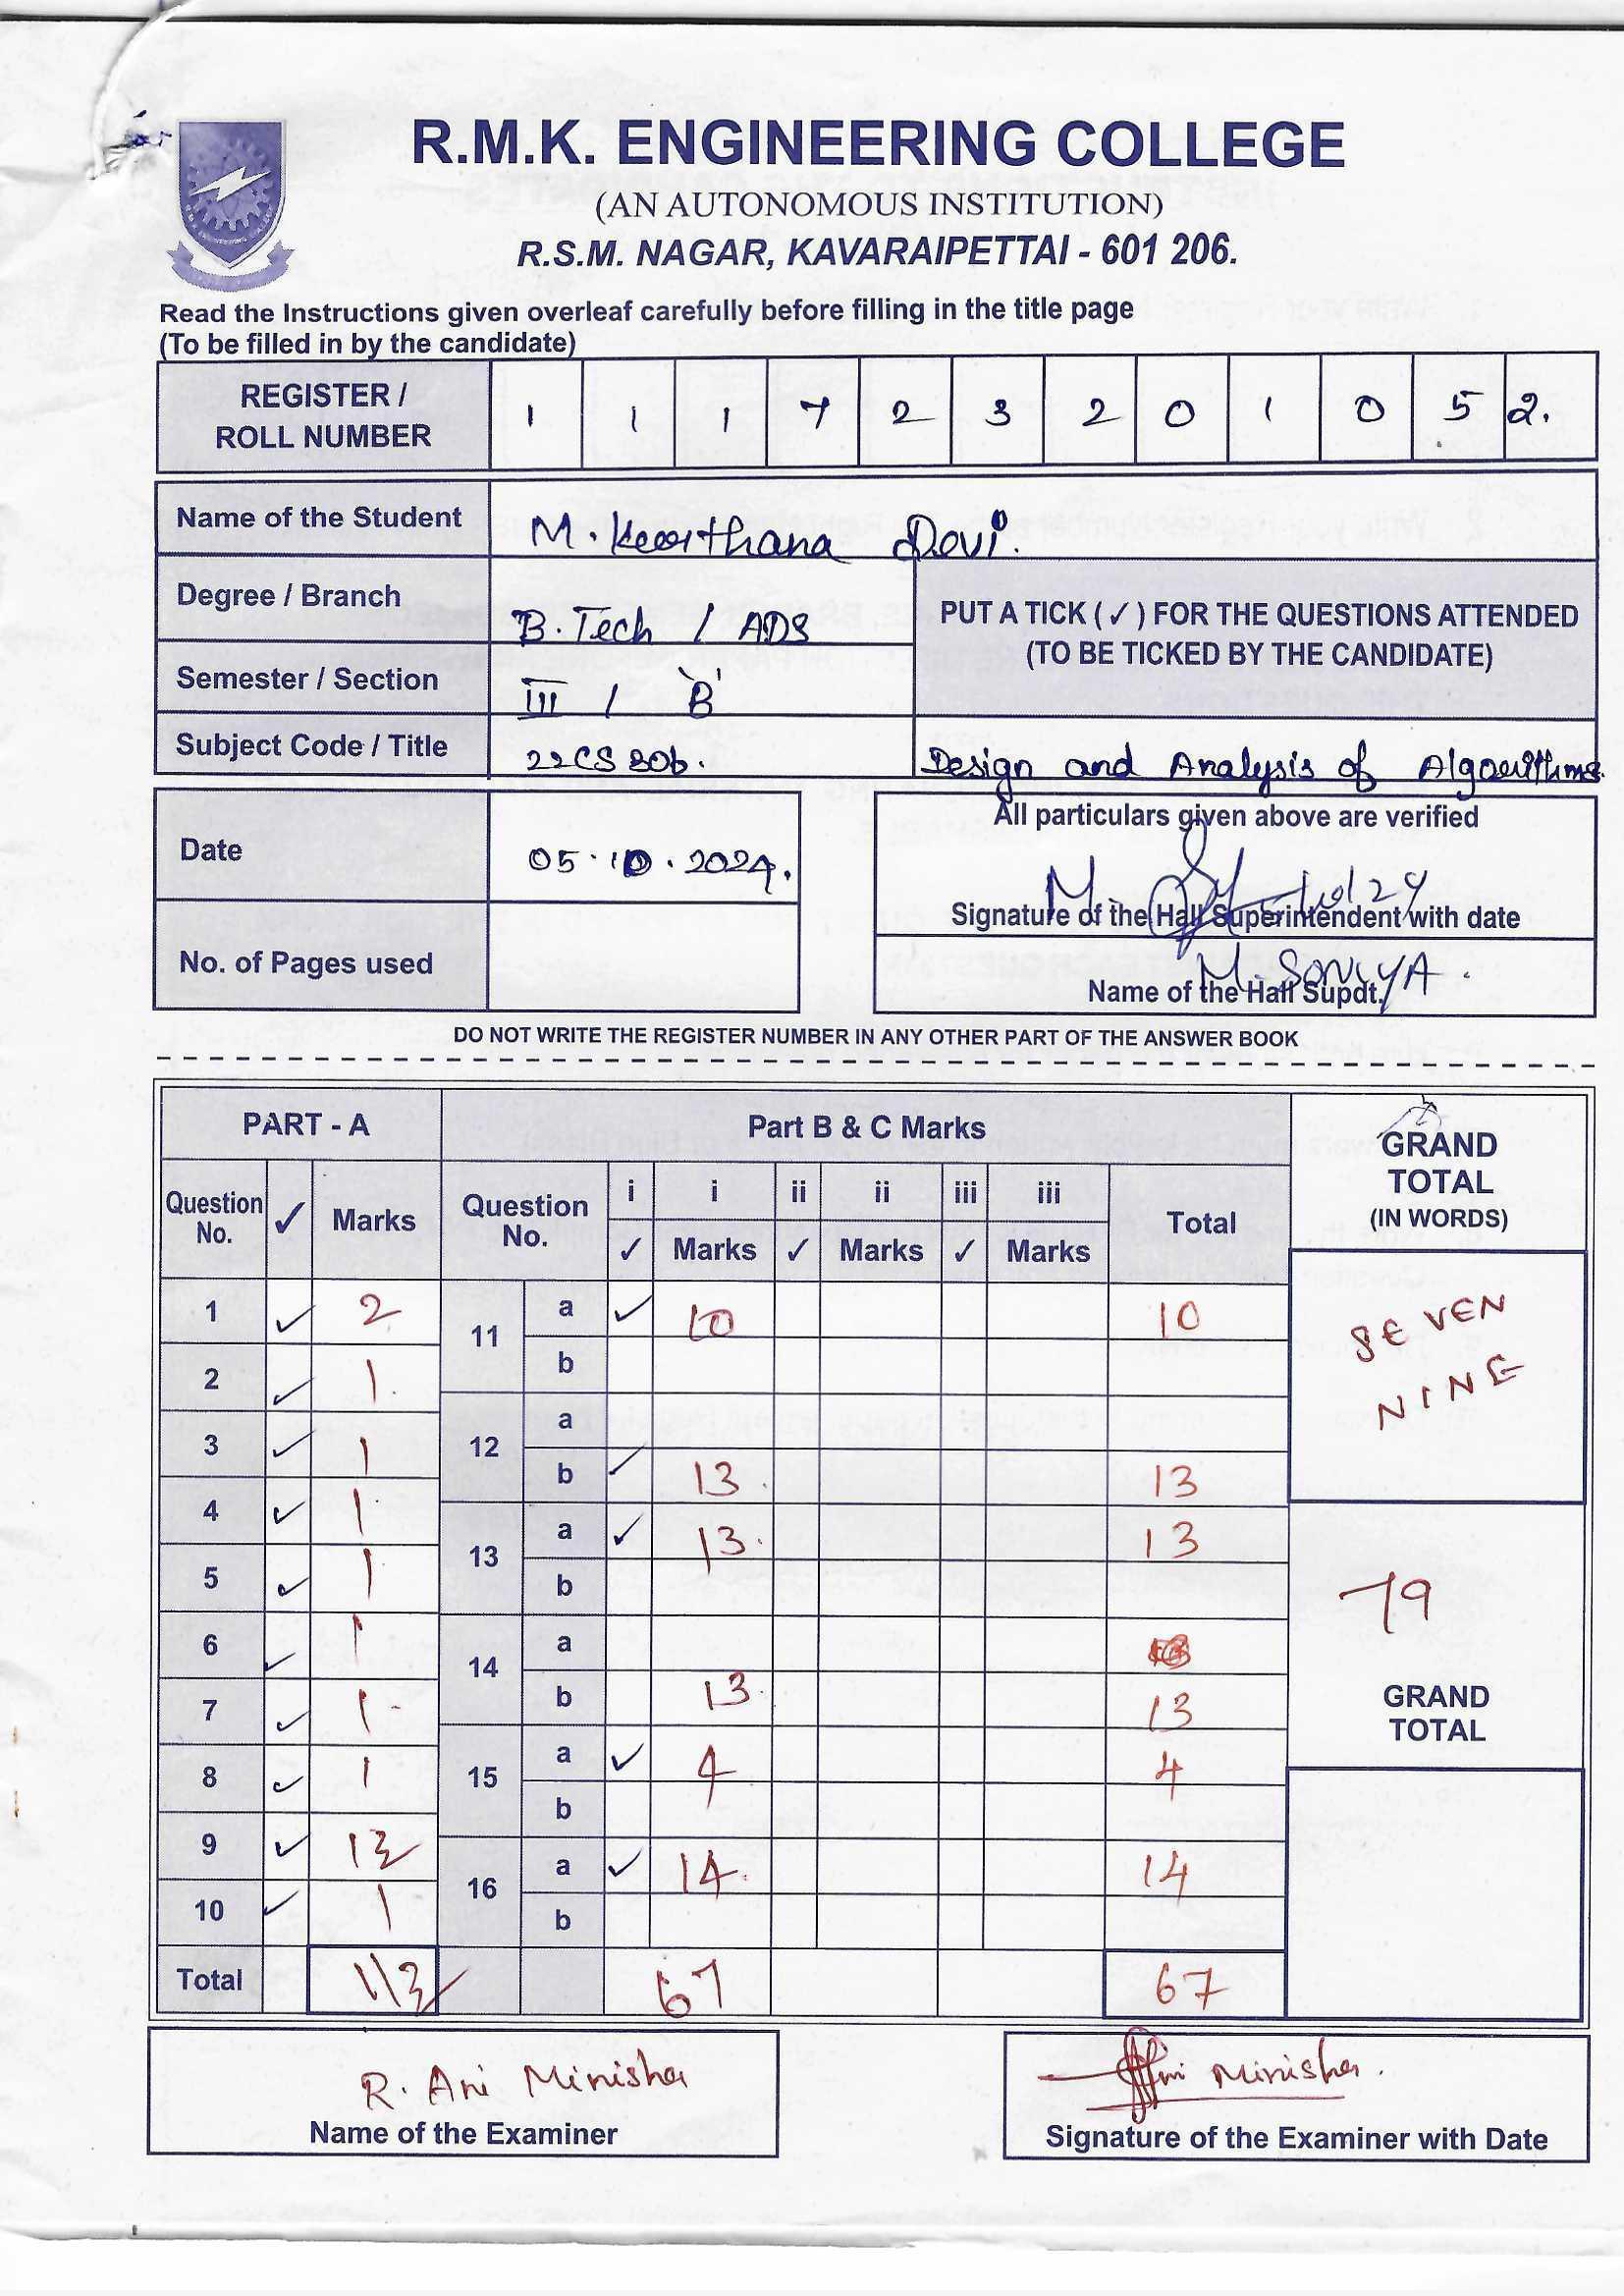 R.M.K. ENGINEERING COLLEGE
(AN AUTONOMOUS INSTITUTION)
R.S.M. NAGAR, KAVARAIPETTAI - 601 206.
Read the Instructions given overleaf carefully before filling in the title page
(To be filled in by the candidate)
REGISTER / ROLL NUMBER 1 1 1 7 2 3 2 0 1 0 5 2.
Name of the Student M. Keerthana Devi.
Degree / Branch B.Tech / ADS
PUT A TICK ( ✓ ) FOR THE QUESTIONS ATTENDED
(TO BE TICKED BY THE CANDIDATE)
Semester / Section III / 'B'
Subject Code / Title 22CS306. Design and Analysis of Algorithms.
All particulars given above are verified
Date 05.10.2024.
Signature of the Hall Superintendent with date
No. of Pages used
M. SONIYA.
Name of the Hall Supdt.
DO NOT WRITE THE REGISTER NUMBER IN ANY OTHER PART OF THE ANSWER BOOK
PART - A Part B & C Marks GRAND TOTAL (IN WORDS)
Question No. ✓ Marks Question No. i i ii ii iii iii Total
✓ Marks ✓ Marks ✓ Marks
1 ✓ 2 11 a ✓ 10 10
SEVEN
NINE
b
2 ✓ 1.
3 ✓ 1 12 a
b ✓ 13. 13
4 ✓ 1.
13 a ✓ 13. 13
5 ✓ 1 b
79
6 ✓ 1 14 a
7 ✓ 1- b 13. 13
GRAND TOTAL
8 ✓ 1 15 a ✓ 4 4
b
9 ✓ 16 a ✓ 14. 14
10 ✓ 1 b
Total 67 67
R. Ani Minisha
Name of the Examiner
Ani Minisha.
Signature of the Examiner with Date